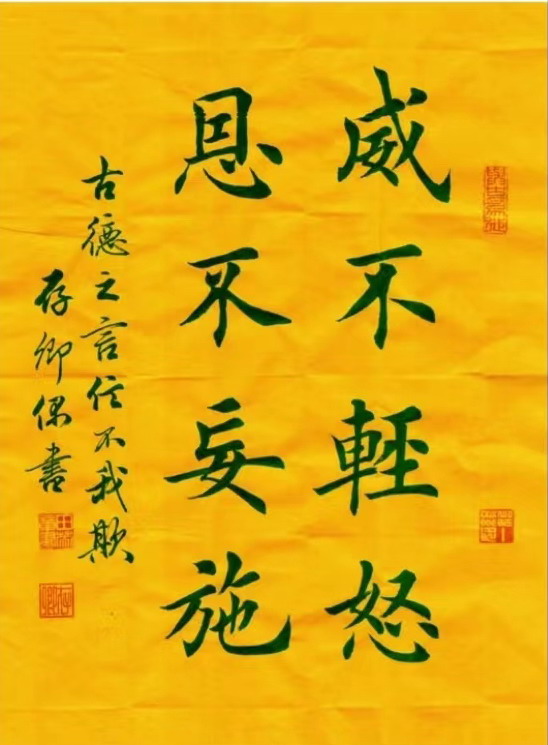 威不輕怒
恩不妄施
古德之言信不我欺
存卿偶書